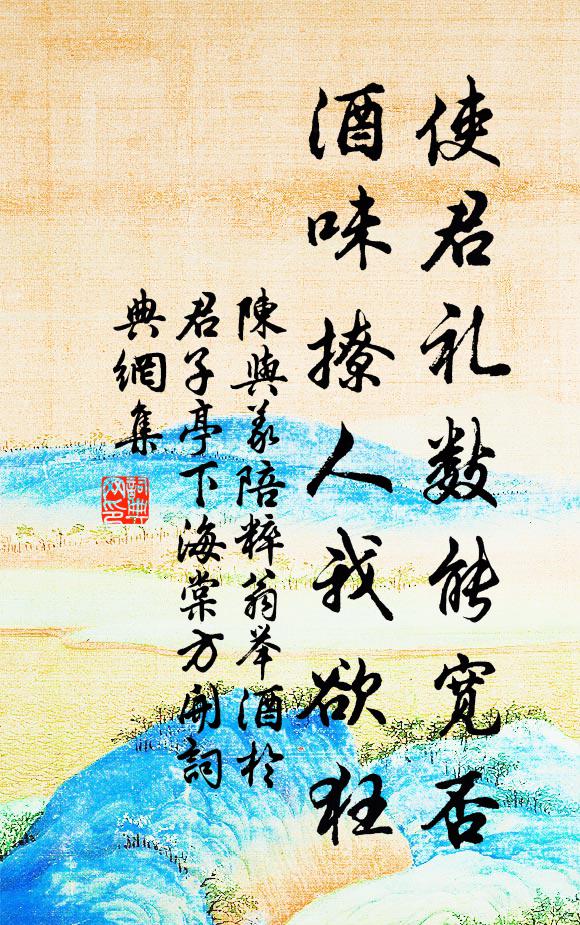 使君礼数能寬否
酒味撩人我欲狂
陳與義陪粹翁举酒於
君子亭下海棠方開詞
典網集
詞典